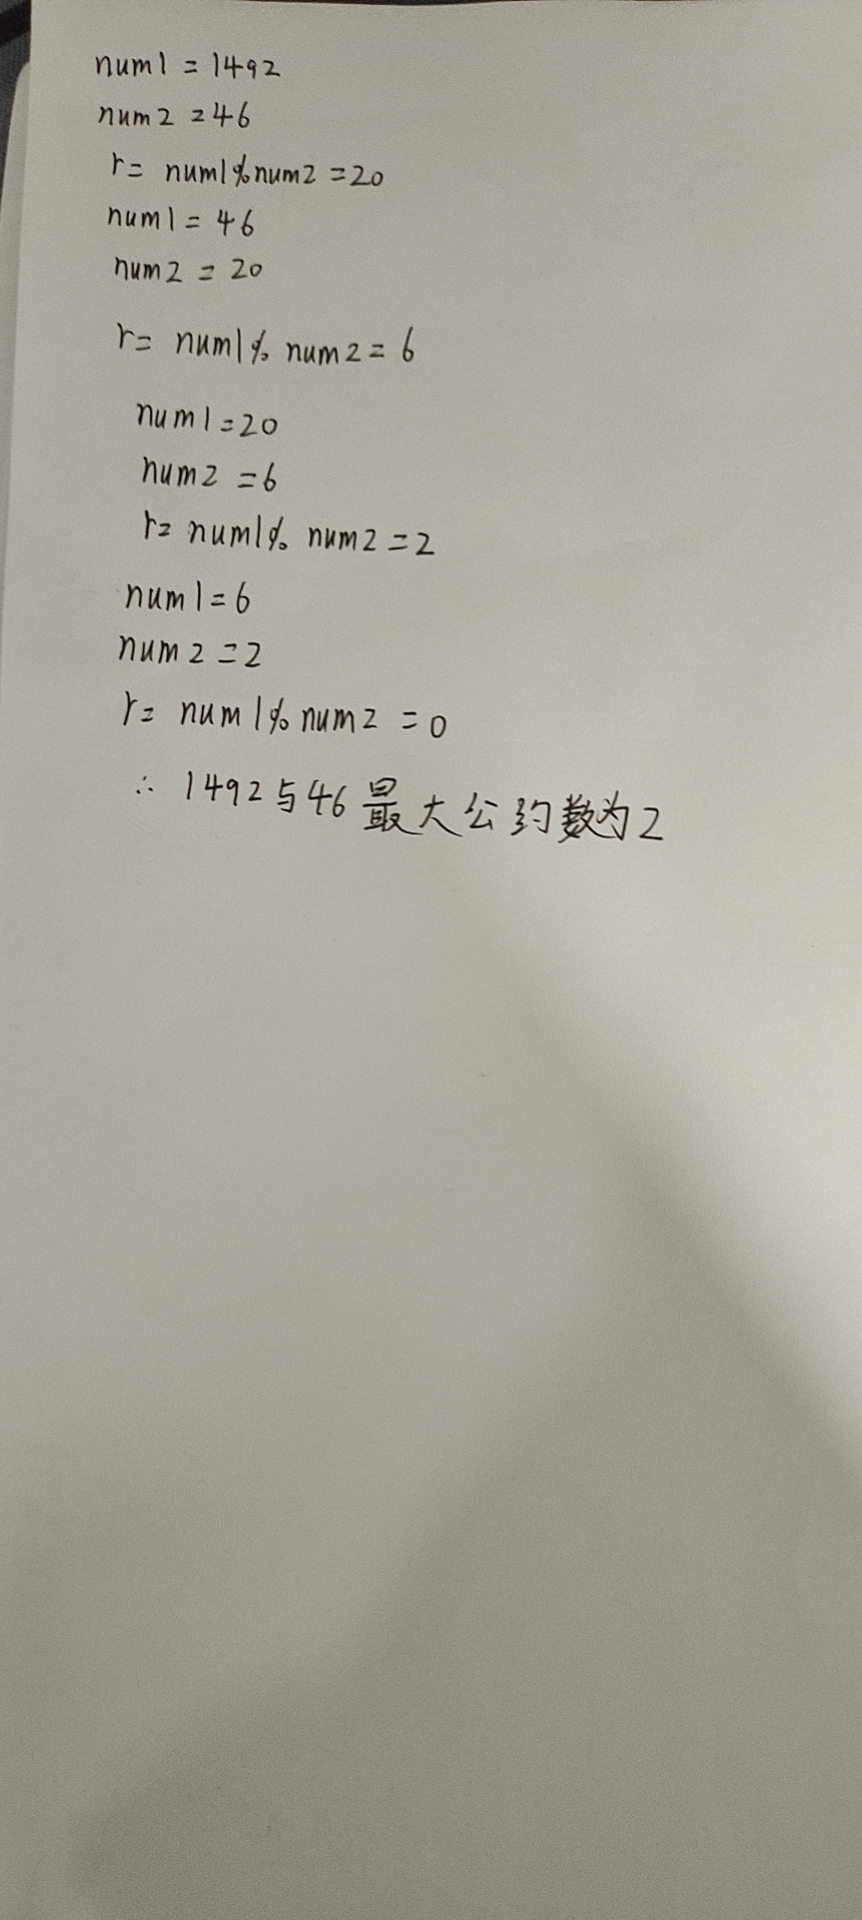 num1 = 1492
num2 = 46
r= num1%num2 = 20
num1 = 46
num2 = 20
r= num1% num2 = 6
num1 = 20
num2 = 6
r= num1% num2 = 2
num1 = 6
num2 = 2
r= num1% num2 = 0
∴ 1492与46最大公约数为2